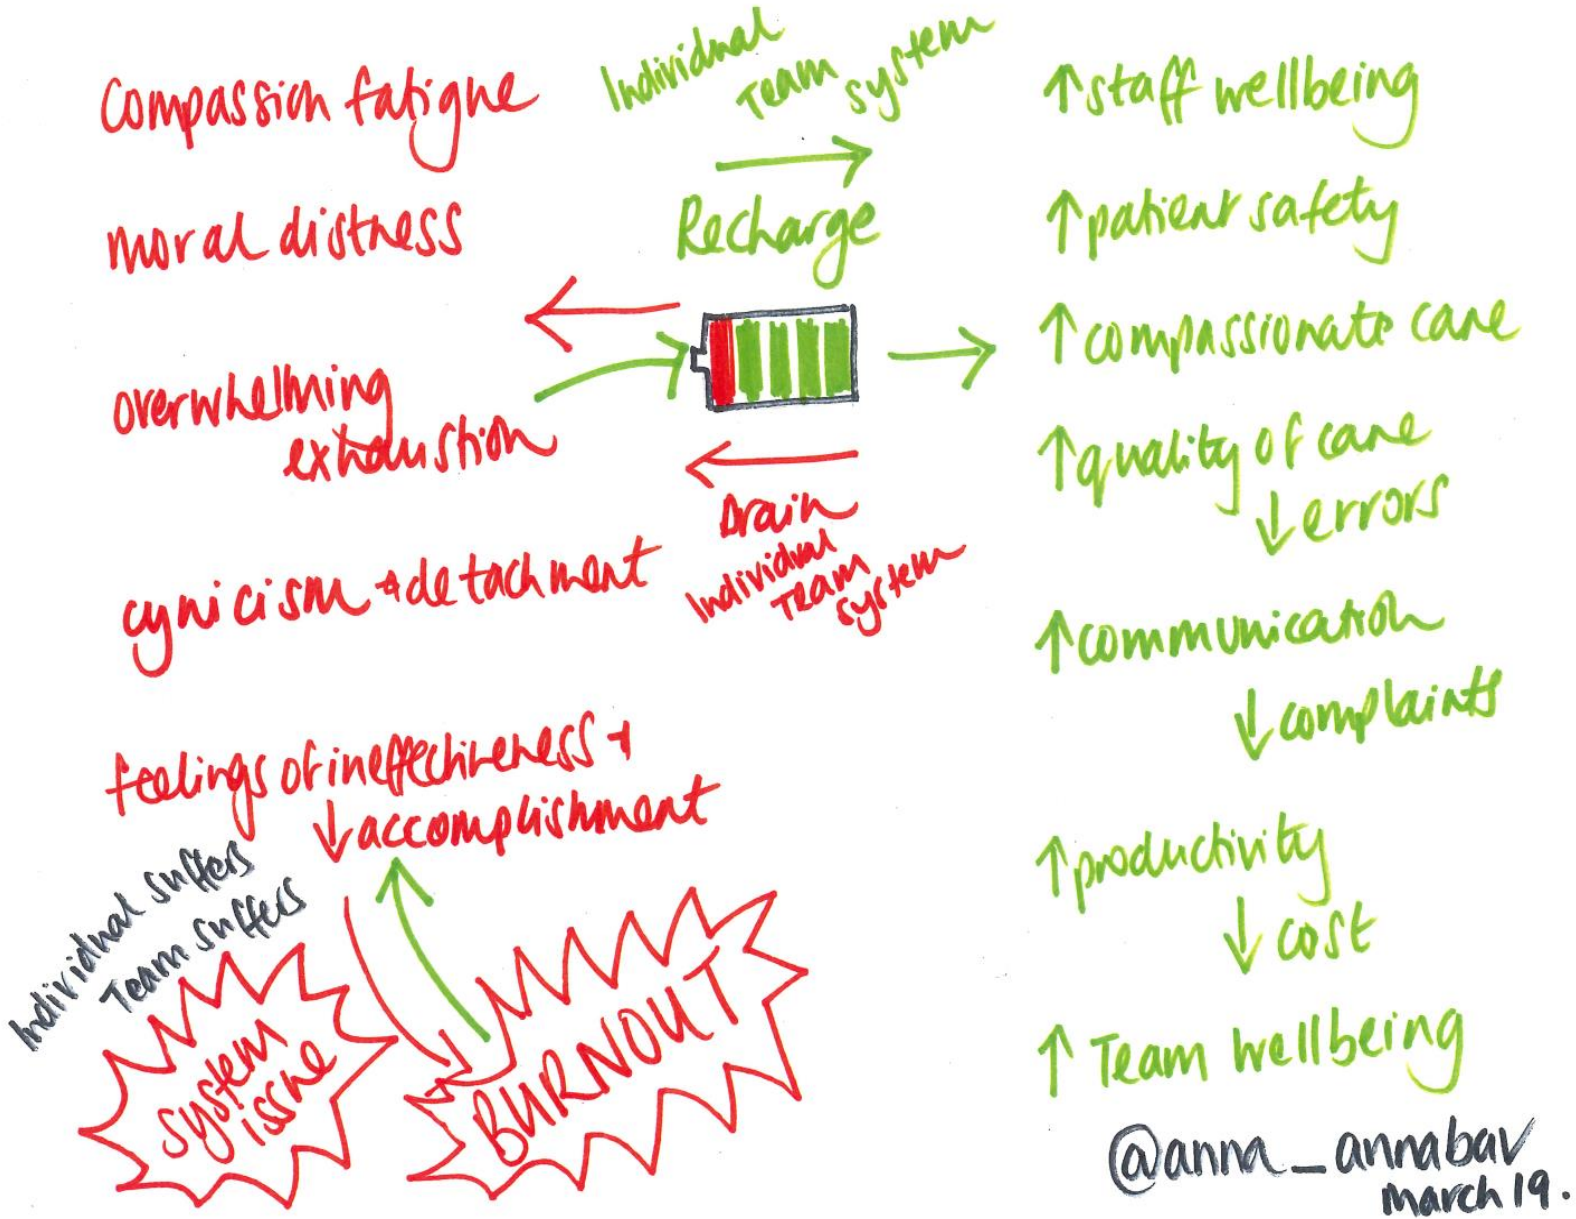 Compassion fatigue
moral distress
overwhelming
exhaustion
cynicism + detachment
feelings of ineffectiveness +
↓ accomplishment
Individual suffers
Team suffers
system
issue
BURNOUT
Individual
Team
system
Recharge
Drain
Individual
Team
system
↑ staff wellbeing
↑ patient safety
↑ compassionate care
↑ quality of care
↓ errors
↑ communication
↓ complaints
↑ productivity
↓ cost
↑ Team wellbeing
@anna_annabav
march 19.